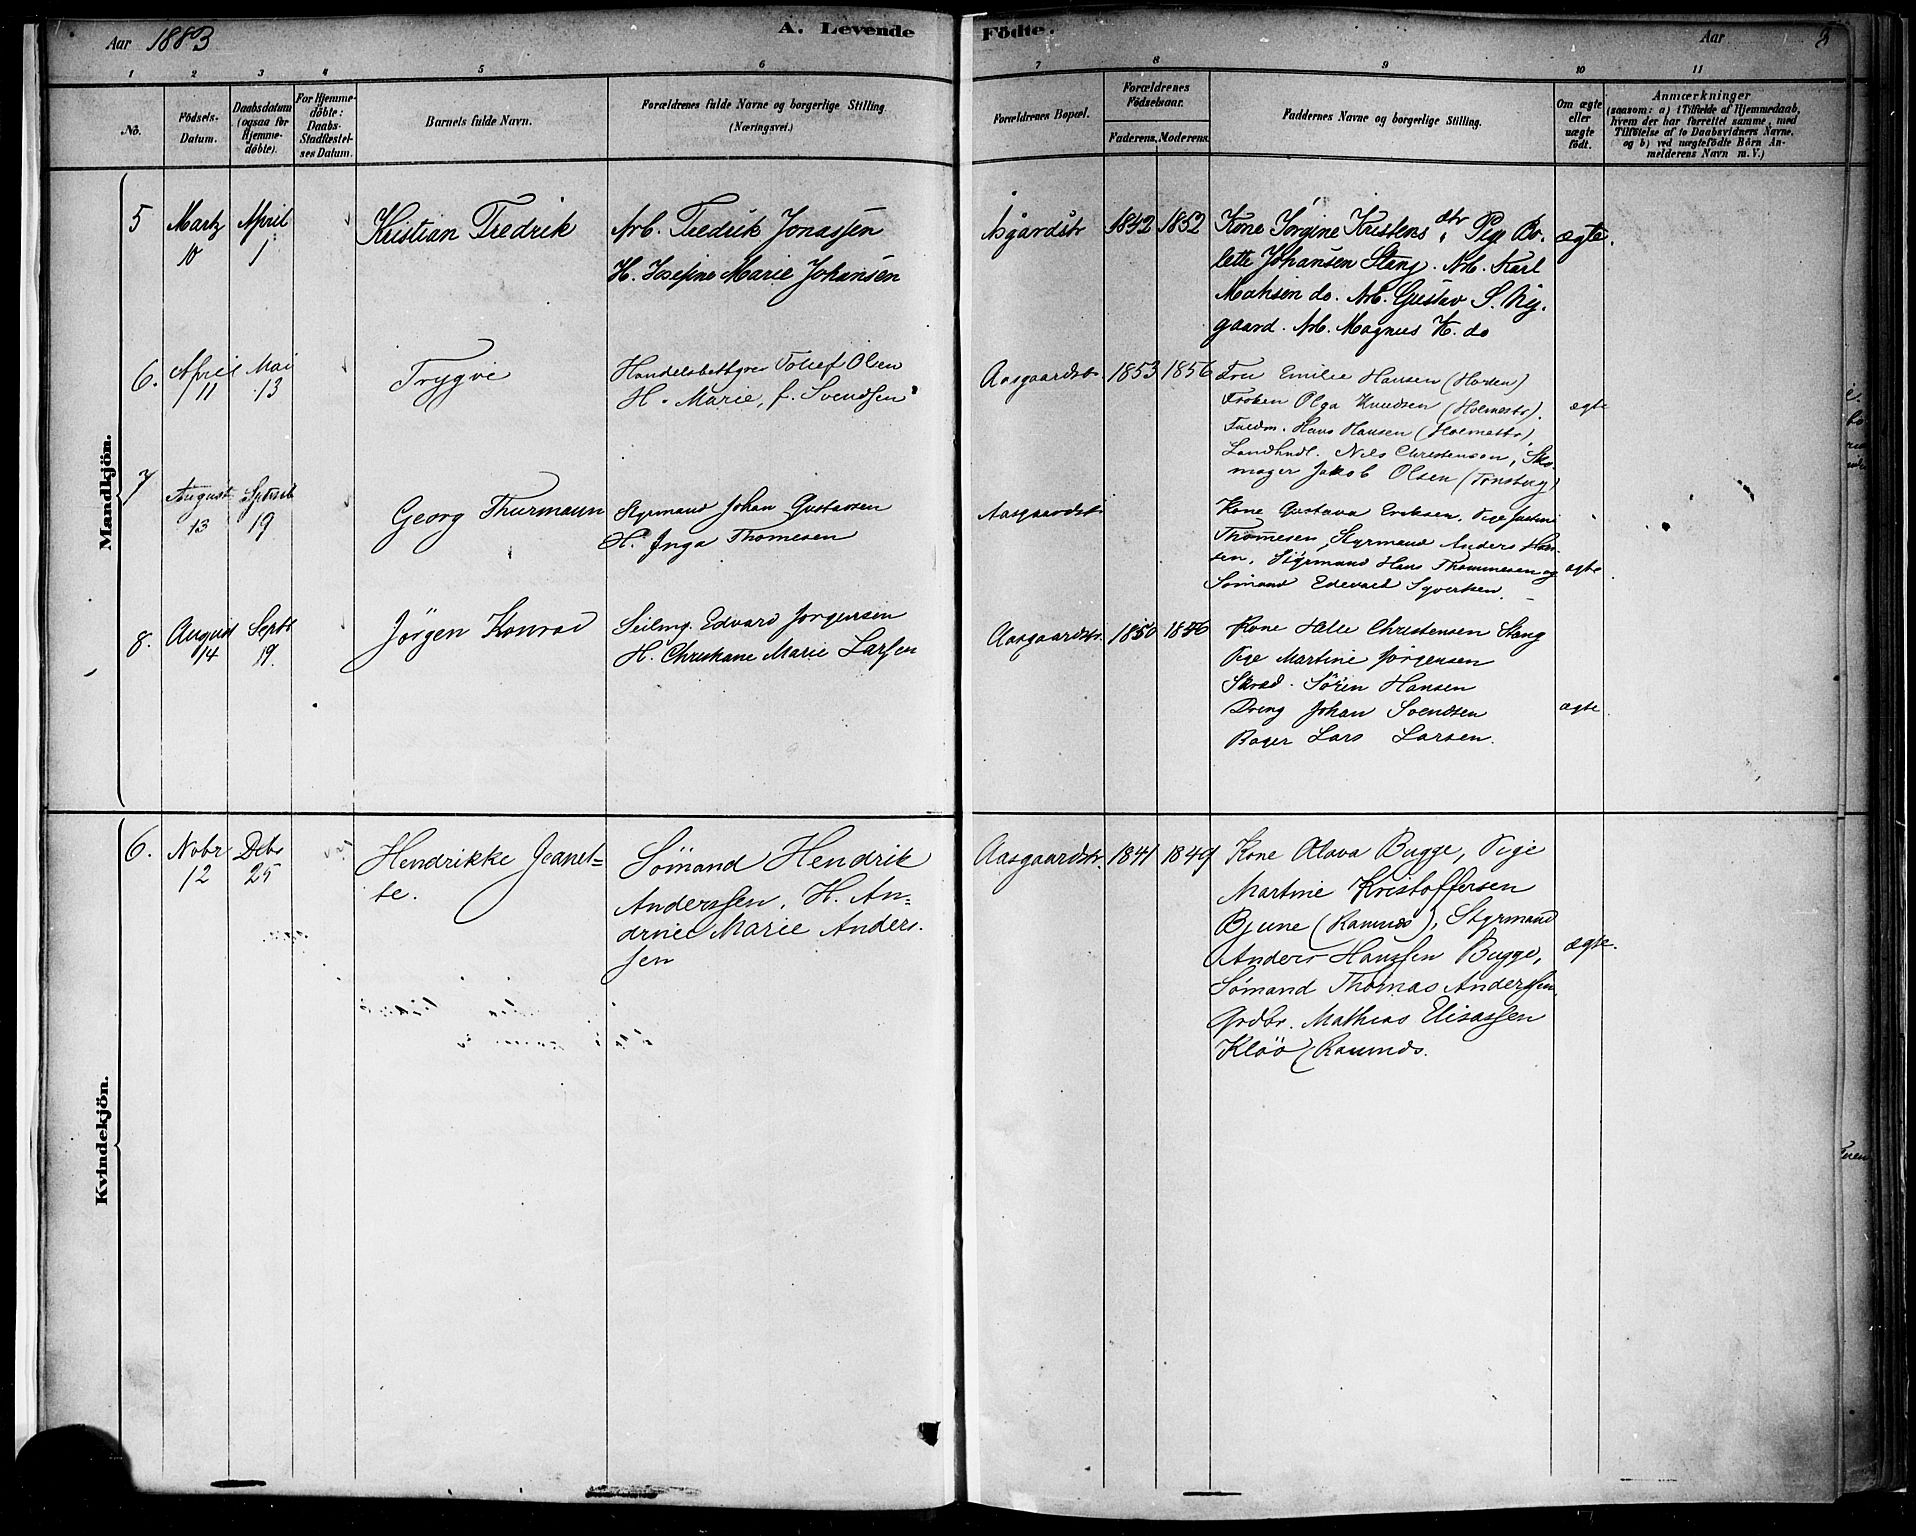 Aar 1883
A. Levende
Födte.
Aar
1 2 3 4 5 6 7 8 9 10 11
No.
Födsels-
Datum.
Daabsdatum
(ogsaa for
Hjemme-
döbte).
For Hjemme-
döbte:
Daabs-
Stadfæstel-
ses Datum.
Barnets fulde Navn.
Forældrenes fulde Navne og borgerlige Stilling.
(Næringsvei.)
Forældrenes Bopæl.
Forældrenes
Födselsaar.
Faderens. Moderens.
Faddernes Navne og borgerlige Stilling.
Om ægte
eller
uægte
födt.
Anmærkninger
(saasom: a) i Tilfælde af Hjemmedaab,
hvem der har forrettet samme, med
Tilföielse af to Daabsvidners Navne,
og b) ved uægtefödte Börn An-
melderens Navn m. V.)
Mandkjön.
5 Martz 10 April 1
Kristian Fredrik
Arb. Fredrik Jonassen
H. Josefine Marie Johansen
Åsgårdstr 1842 1852
Kone Jørgine Kristensdtr, Pige Bo-
lette Johansen Stang. Arb. Karl
do. Arb. Gustav S. Ny-
gaard. Arb. Magnus K. do
ægte.
6. April 11 Mai 13
Trygve
Handelsbettyrer Tollef Olsen
H. Marie, f. Svendsen
Aasgaardstr. 1853 1856
Fru Emilie Hansen (Horten)
Frøken Olga Knudsen (Holmestr).
Fuldm. Hans Hansen (Holmestr),
Landhndl. Nils Christensen, Sko-
mager Jakob Olsen (Tønsberg)
ægte
7 August 13 Septemb 19
Georg Thurmann
Styrmand Johan Gustavsen
H. Inga Thomesen
Aasgaardstr
Kone Gustava Eriksen, Pige Justine
Thommesen, Styrmand Anders Han-
sen, Styrmand Hans Thommesen og
Sømand Edevart Syvertsen.
ægte
8. August 14 Septb 19.
Jörgen Konrad
Seilmg. Edvard Jørgensen
H. Christiane Marie Larsen
Aasgaardstr. 1850 1856
Kone Helle Christensen Stang
Pige Martine Jørgensen
Skræd. Sören Hansen
Dreng Johan Svendsen
Bager Lars Larsen.
ægte
Kvindekjön.
6. Nobr 12 Debr 25
Hendrikke Jeanet-
te.
Sömand Hendrik
Anderssen, H. An-
drine Marie Anders-
sen
Aasgaardstr. 1841 1849
Kone Olava Bugge, Pige
Martine Kristoffersen
Bjune (Ramnes), Styrmand
Anders Hanssen Bugge,
Sömand Thomas Anderssen,
Grdbr. Mathias Elisassen
Klöö (Ramnes.
ægte.